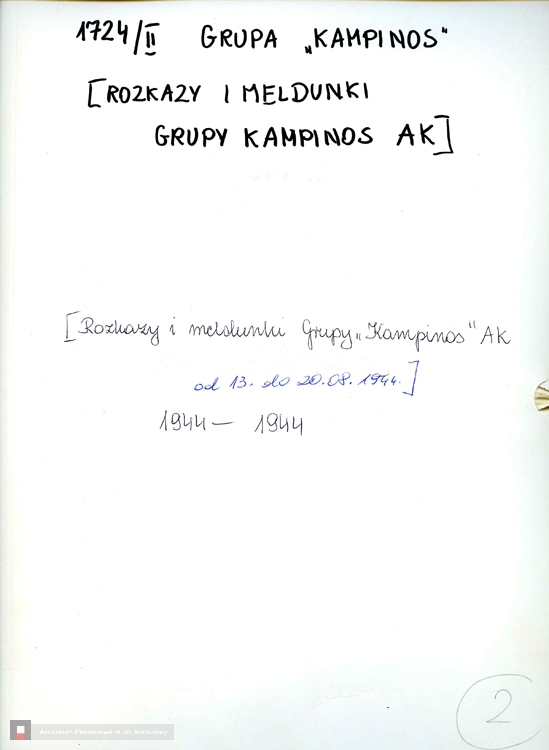 1724/II GRUPA „KAMPINOS"
[ROZKAZY I MELDUNKI
GRUPY KAMPINOS AK]
[Rozkazy i meldunki Grupy „Kampinos" AK
od 13. do 20.08.1944.]
1944 — 1944
2
Archiwum Państwowe m. st. Warszawy